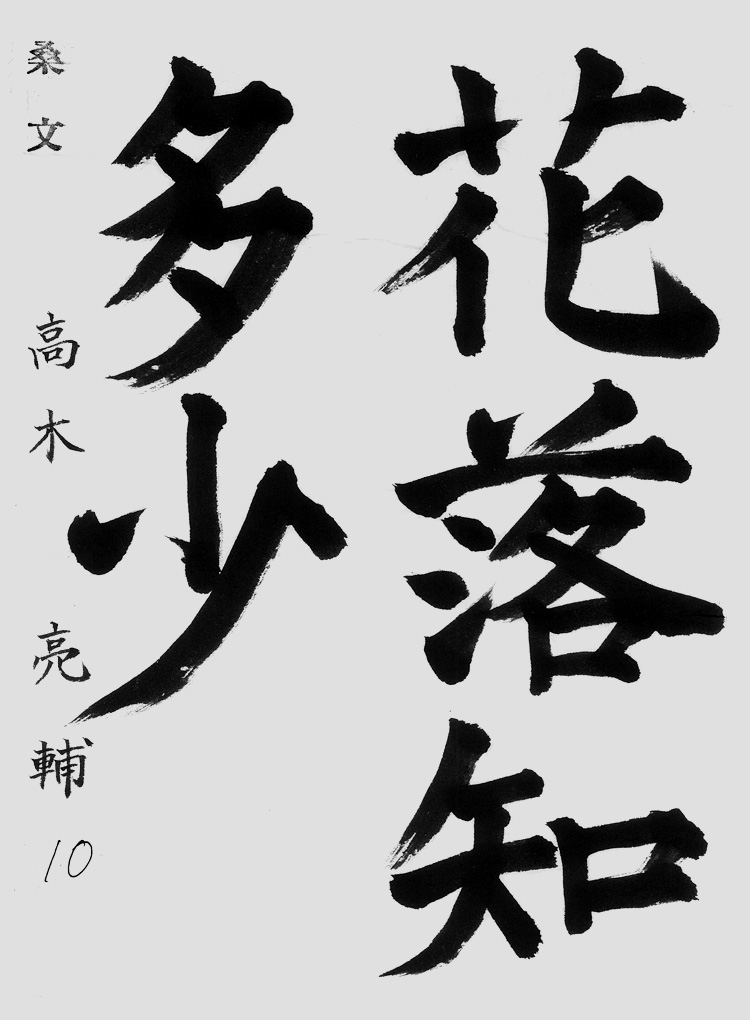 花落知
多少
桑文 高木亮輔 10